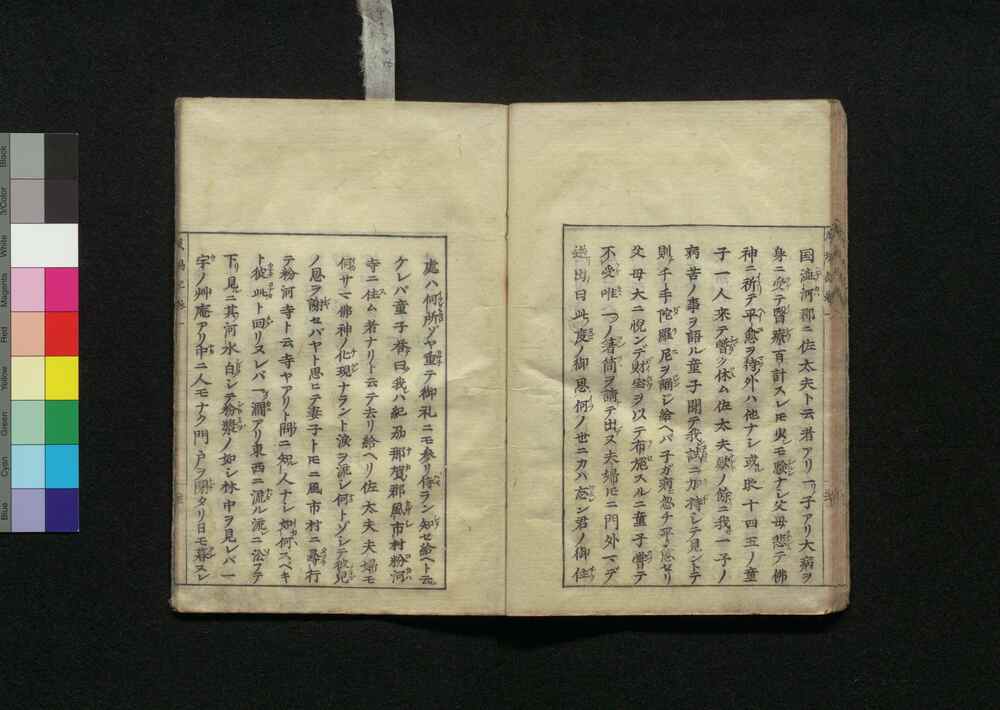 国澁河郡ニ佐太夫ト云者アリ一子アリ大病ヲ
身ニ受テ醫療百計スレモ更モ驗ナシ父母悲テ佛
神ニ祈テ平愈ヲ待外ハ他ナシ或時十四五ノ童
子一人來テ暫シ休ム佐太夫歎ノ餘ニ我一子ノ
病苦ノ事ヲ語ル童子聞テ我試ニ加持シテ見ントテ
則千手陀羅尼ヲ誦シ給ヘバ子ガ病忽チ平愈セリ
父母大ニ悦ンデ財宝ヲ以テ布施スルニ童子曽テ
不受唯一ツノ箸筒ヲ請テ出ス夫婦ニ門外マデ
送出曰此度ノ御恩何ノ世ニカハ忘ン君ノ御住
處ハ何所ゾヤ重テ御礼ニモ参リ侍ラン知セ給ヘト云
ケレバ童子荅曰我ハ紀刕那賀郡風市村粉河
寺ニ住ム者ナリト云テ去リ給ヘリ佐太夫夫婦モ
何サマ佛神ノ化現ナラント涙ヲ流シ何トゾシテ彼児
ノ恩ヲ謝セバヤト思ヒテ妻子トモニ風市村ニ尋行
テ粉河寺ト云寺ヤアリト問ニ知人ナシ如何スベキ
ト彼此ト回リスレバ一澗アリ東西ニ流ル流ニ沿フテ
下リ見ニ其河水白シテ粉漿ノ如シ林中ヲ見レバ一
宇ノ艸庵アリ中ニ人モナク門戸ヲ閉タリ日モ暮スレ
Black
3/Color
White
Magenta
Red
Yellow
Green
Cyan
Blue